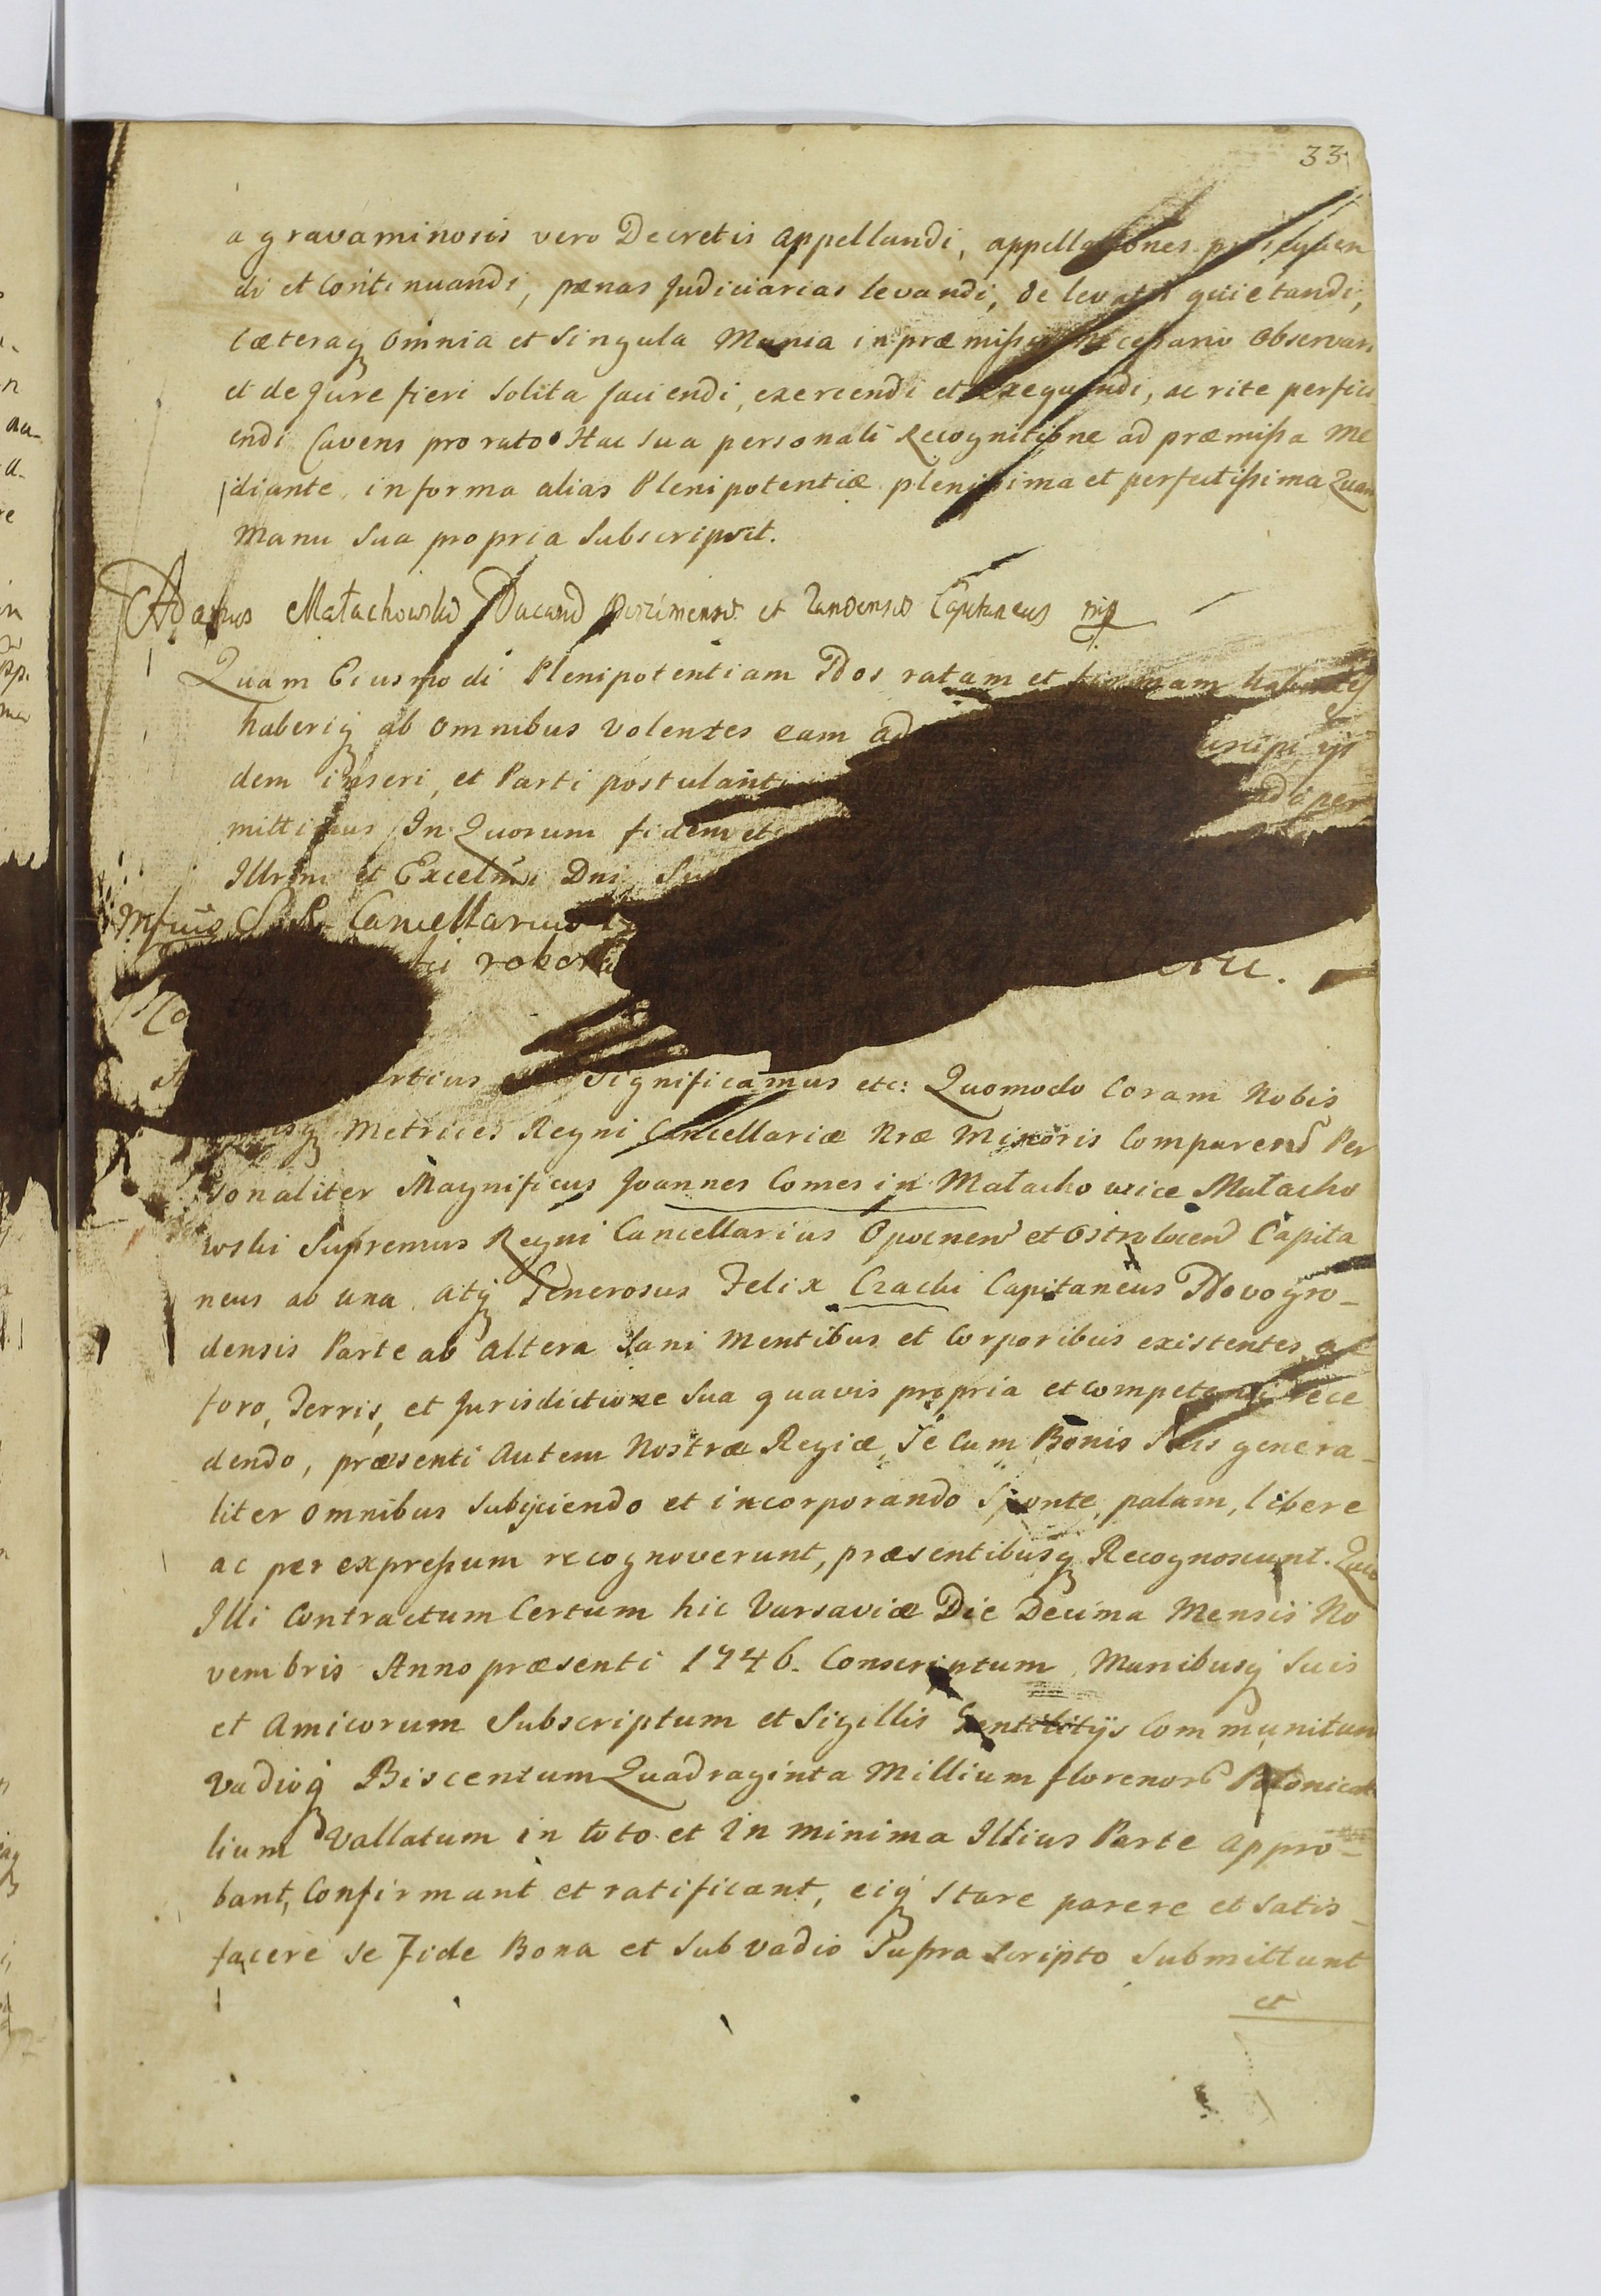 33
a gravaminosis vero Decretis appellandi, appellationes prosequen
di et Continuandi, pænas Judiciarias levandi, de levatis quietandi,
Cæteraq omnia et singula Munia in præmissis necessario observari
et de Jure fieri solita faciendi, exercendi et exequendi, ac rite perfici
endi Cavens pro rato Hac sua personali Recognitione ad præmissa Me
diante, in forma alias Plenipotentiæ plenissima et perfectissima Quam
manu sua propria subscripsit.
Adamus Małachowski et Capitaneus mp
Quam Eiusmodi Plenipotentiam Nos ratam et firmam habentes
haberiq ab omnibus volentes eam ad uscipi, ijs
dem inseri, et Parti postulanti di per
mittimus In Quorum fidem et
Illrmi et Excelmi Dni
S. R. Cancellarius
robora
rtius significamus etc: Quomodo Coram Nobis
Metrices Regni Cancellariæ Nræ Minoris Comparens Per
sonaliter Magnificus Joannes Comes in Małachowice Małacho
wski Supremus Regni Cancellarius Opocnen et Ostrolocen Capita
neus ab una, atq Generosus Felix Czacki Capitaneus Novogro_
densis Parte ab altera sani Mentibus et Corporibus existentes, a
foro, Terris, et Jurisdictione sua quavis propria et competenti rece
dendo, præsenti autem Nostræ Regiæ, se cum Bonis suis genera_
liter omnibus subijciendo et incorporando sponte, palam, libere
ac per expressum recognoverunt, præsentibusq Recognoscunt. Quia
Illi Contractum Certum hic Varsaviæ Die Decima Mensis No
vembris Anno præsenti 1746. Conscriptum, Manibusq suis
et Amicorum subscriptum et Sigillis Gentilitijs Communitum
Vadioq Biscentum Quadraginta Millium florenor Polonica
lium Vallatum in toto et in minima Illius Parte appro_
bant, Confirmant et ratificant, eiq stare parere et satis_
facere se Fide Bona et sub vadio supra scripto submittunt
et